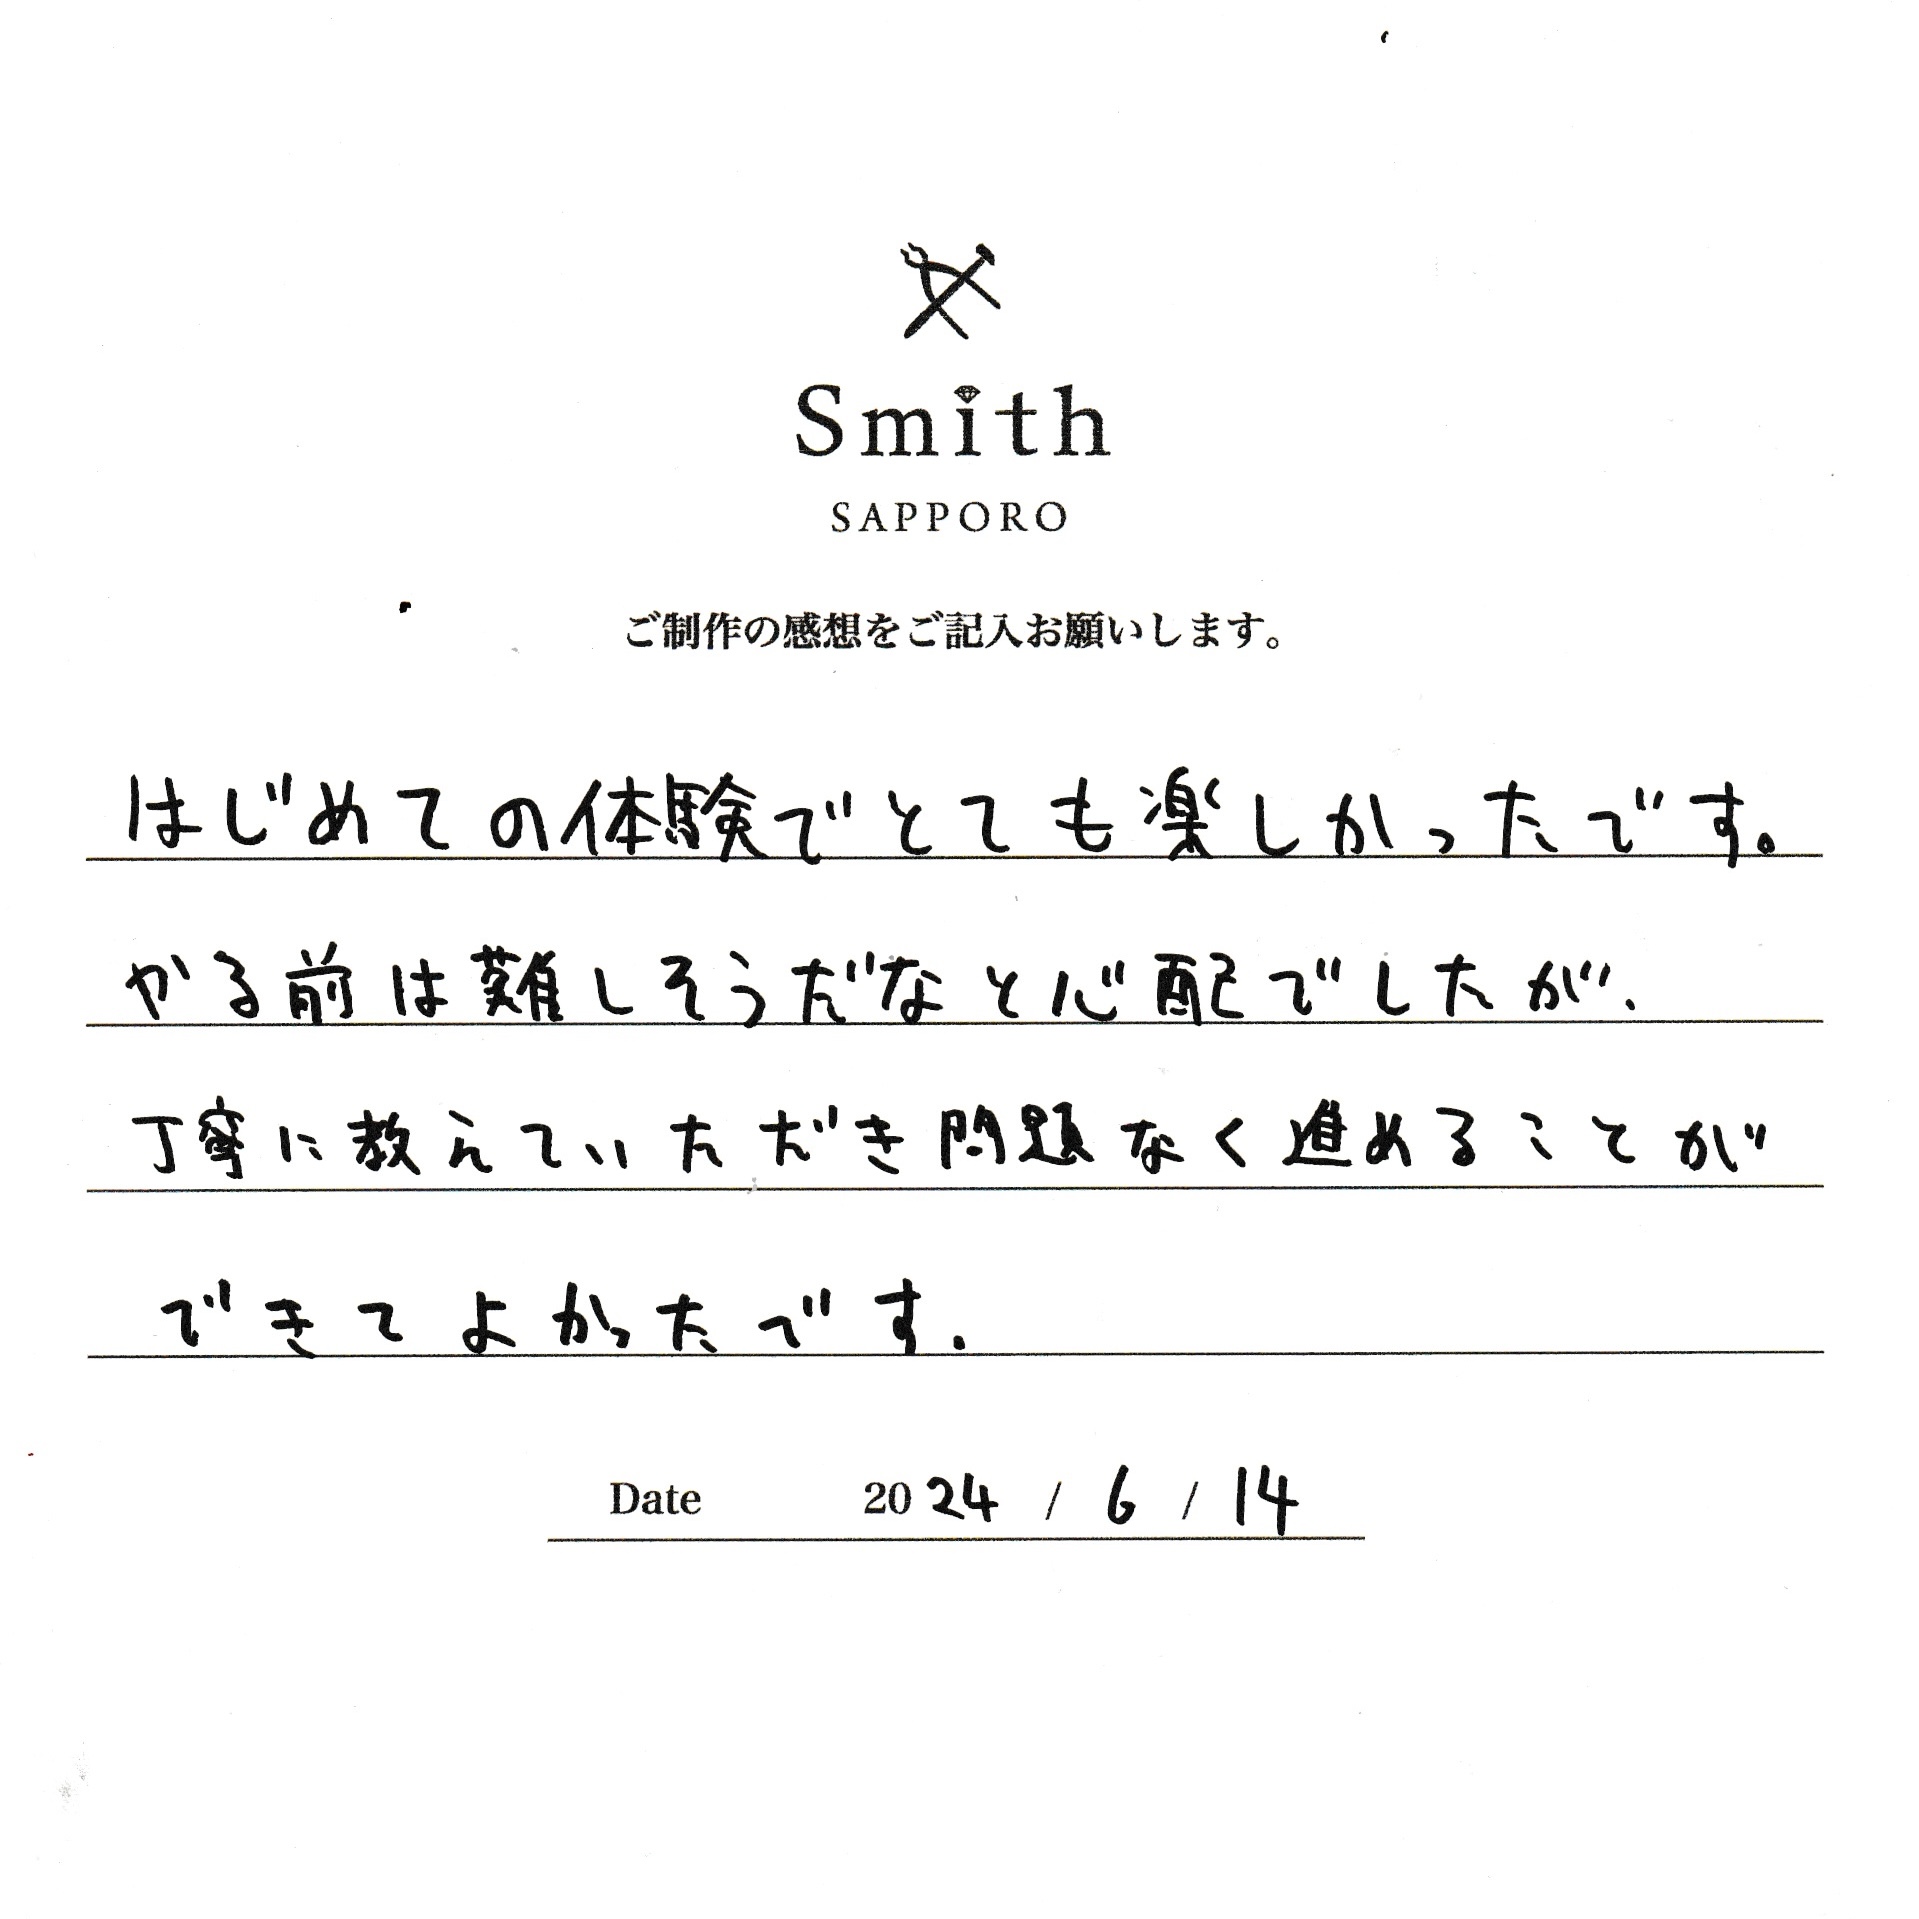 Smith
SAPPORO
ご制作の感想をご記入お願いします。
はじめての体験でとても楽しかったです。
やる前は難しそうだなと心配でしたが、
丁寧に教えていただき問題なく進めることが
できてよかったです.
Date 2024 / 6 / 14